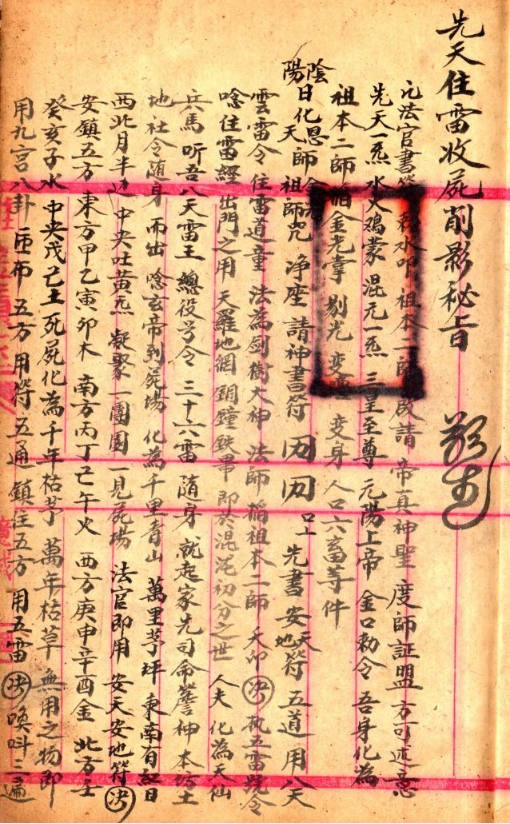 先天住雷收屍削影秘旨
凡法官書符 祖本二師 啟請 帝真神聖 度師証盟 方可述意
先天一炁 水火鴻蒙 混元一炁 三皇至尊 元陽上帝 金口勅令 吾身化為
祖本二師 金光 変身 人口六畜等件
陰陽日化恩師 祖師咒 淨座 請神書符 口上 先書安天地符 五道 用八天
雲雷令 住雷道童 法為劍樹大神 法師 祖本二師 天卯 决 执五雷號令
唸住雷經出門之用 天羅地網 銅鐘鉄 即於混沌初分之世 人夫化為天仙
兵馬 听吾八天雷王 總役号令 三十六雷 随身 就起家先司命 神 本 土
地 社令随身 而出 唸玄帝到屍場 化為千里青山 萬里茅坪 東南有紅日
西北月半 中央吐黃炁 凝聚一團圓 一見屍場 法官即用 安天安地符 决
安鎮五方 東方甲乙寅卯木 南方丙丁巳午火 西方庚申辛酉金 北方壬
癸亥子水 中央戊己土 死屍化為千年枯茅 萬年枯草 無用之物 即
用九宮八卦 匝布 五方 用符五通 鎮住五方 用五雷 决 喚呌三遍